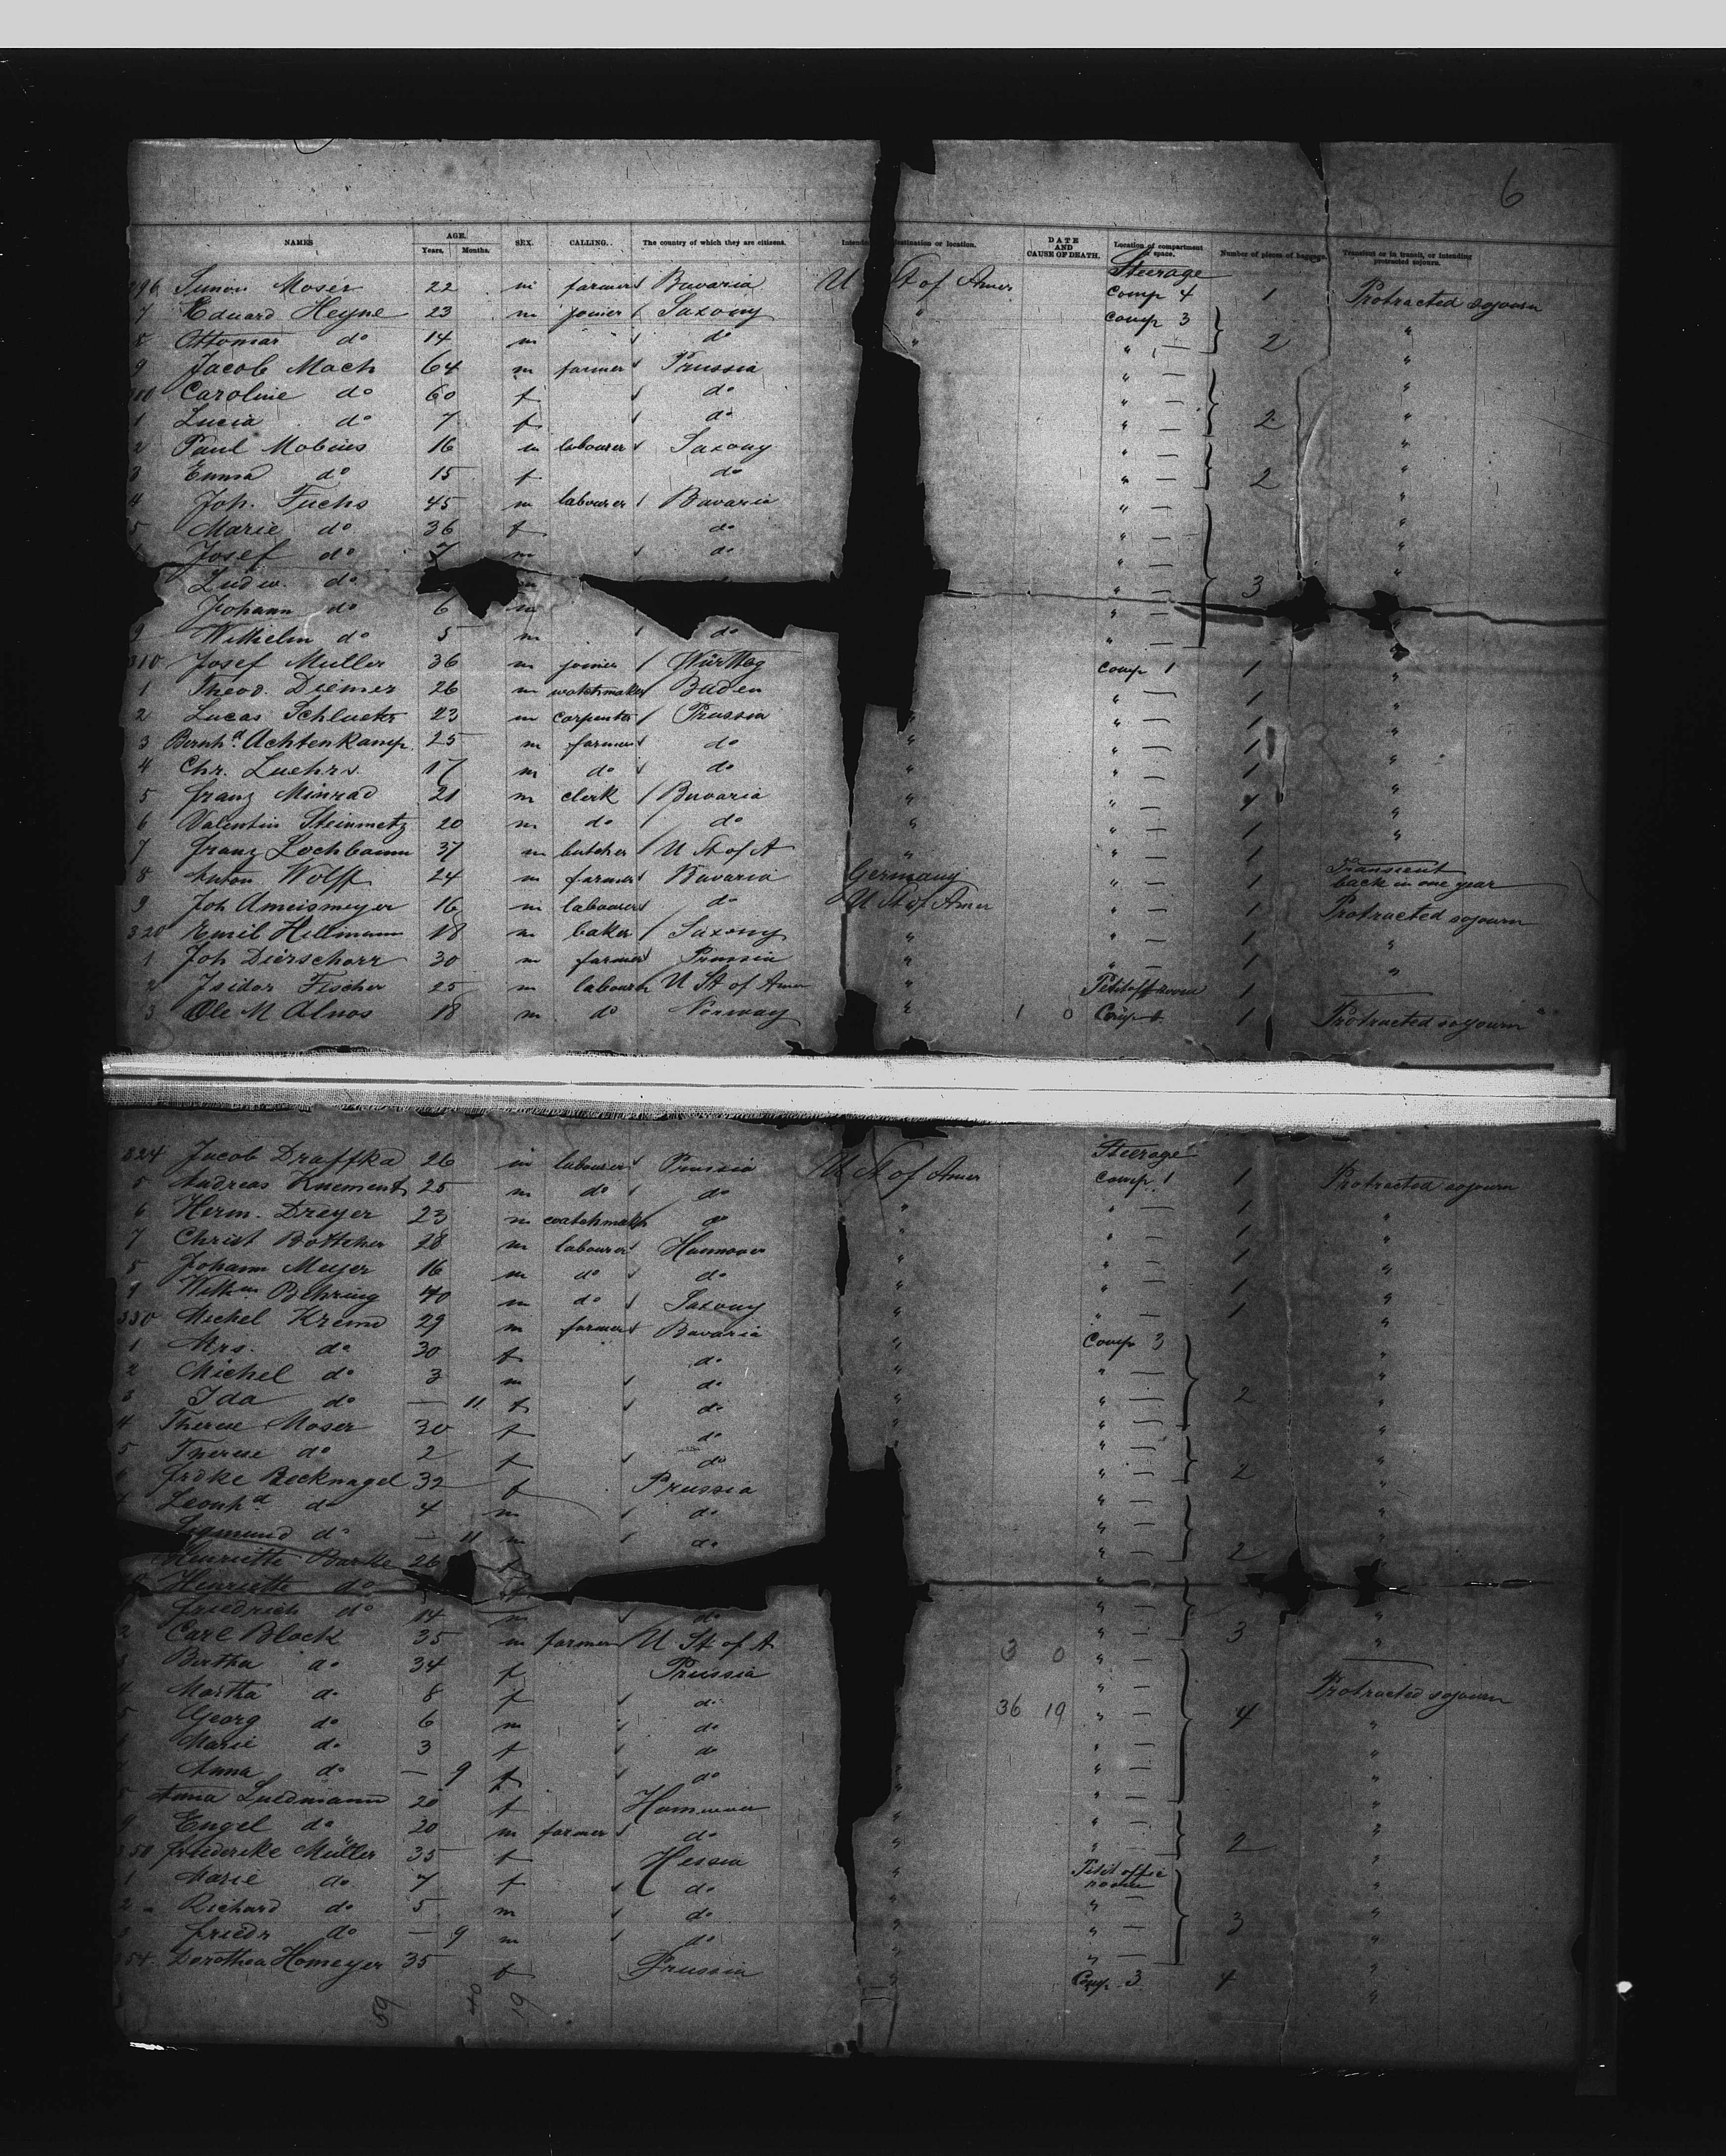 6
NAMES AGE. SEX. CALLING. The country of which they are citizens. Intended destination or location. DATE AND CAUSE OF DEATH. Location of compartment or space. Number of pieces of baggage. Transient or in transit, or intending protracted sojourn.
Years. Months.
Steerage
296 Simon Moser 22 m farmer Bavaria U St of Amer Comp 4 1 Protracted sojourn
7 Eduard Heyne 23 m joiner Saxony " Comp 3 "
8 Ottomar do 14 m do " " — 2 "
9 Jacob Mach 64 m farmer Prussia " — "
300 Caroline do 60 f do " — "
1 Lucia do 7 f do " — 2 "
2 Paul Mobius 16 m labourer Saxony " — "
3 Emma do 15 f do " — 2 "
4 Joh. Fuchs 45 m labourer Bavaria " — "
5 Marie do 36 f do " — "
Josef do 7 m do " — "
Ludw. do " — 3
Johann do 6 m " —
9 Wilhelm do 5 m do " — "
310 Josef Muller 36 m joiner Württbg Comp 1 1 "
1 Theod. Diemer 26 m watchmaker Baden " — 1 "
2 Lucas Schlueter 23 m carpenter Prussia " " — 1 "
3 Bernhd. Achtenkamp 25 m farmer do " " — 1 "
4 Chr. Luehrs 17 m do do " " — 1 "
5 Franz Minrad 21 m clerk Bavaria " " — 1 "
6 Valentin Steinmetz 20 m do do " " — 1 "
7 Franz Lochbaum 37 m butcher U St of A " " — 1
8 Anton Wolff 24 m farmer Bavaria Germany " — 1 Transient back in one year
9 Joh Ameismeyer 16 m labourer do U St of Amer " — 1 Protracted sojourn
320 Emil Hillmann 18 m baker Saxony " " — 1 "
1 Joh Dierschorr 30 m farmer Prussia " " — 1 "
2 Isidor Fischer 25 m labourer U St of Amer " 1 —
3 Ole M Alnos 18 m do Norway " 1 0 Comp 1 Protracted sojourn
Steerage
324 Jacob Draffka 26 m labourer Prussia U St of Amer Comp 1 1 Protracted sojourn
5 Andreas Knement 25 m do do " " — 1 "
6 Herm. Dreyer 23 m watchmaker do " " — 1 "
7 Christ Bottcher 28 m labourer Hannover " " — 1 "
8 Johann Meyer 16 m do do " " — 1 "
9 Wilhm Behring 40 m do Saxony " " — 1 "
330 Michel Kremd 29 m farmer Bavaria " Comp 3 "
1 Mrs. do 30 f do " " — "
2 Michel do 3 m do " " — 2 "
3 Ida do — 11 f do " " — "
4 Therese Moser 30 f do " — "
5 Therese do 2 f do " — 2 "
6 Frdke Becknagel 32 f Prussia " — "
7 Leonhd do 4 m do " — "
Sigmund do — 11 m do " — 2 "
Henriette Barke 26 f " —
Henriette do f " — "
1 Friedrich do 14 m do " — 3 "
2 Carl Block 35 m farmer U St of A 3 0 " — —
3 Bertha do 34 f Prussia " — Protracted sojourn
4 Martha do 8 f do 36 19 " — 4 "
5 Georg do 6 m do " — "
6 Marie do 3 f do " — "
7 Anna do — 9 f do " — "
8 Anna Luedmann 20 f Hannover " " — "
9 Engel do 20 m farmer do " " — 2 "
350 Friedericke Müller 35 f Hessia " "
1 Marie do 7 f do " " — "
2 Richard do 5 m do " " — 3 "
3 Friedr do — 9 m do " " — "
354 Dorothea Homeyer 35 f Prussia " Comp 3 4 "
59 40 19